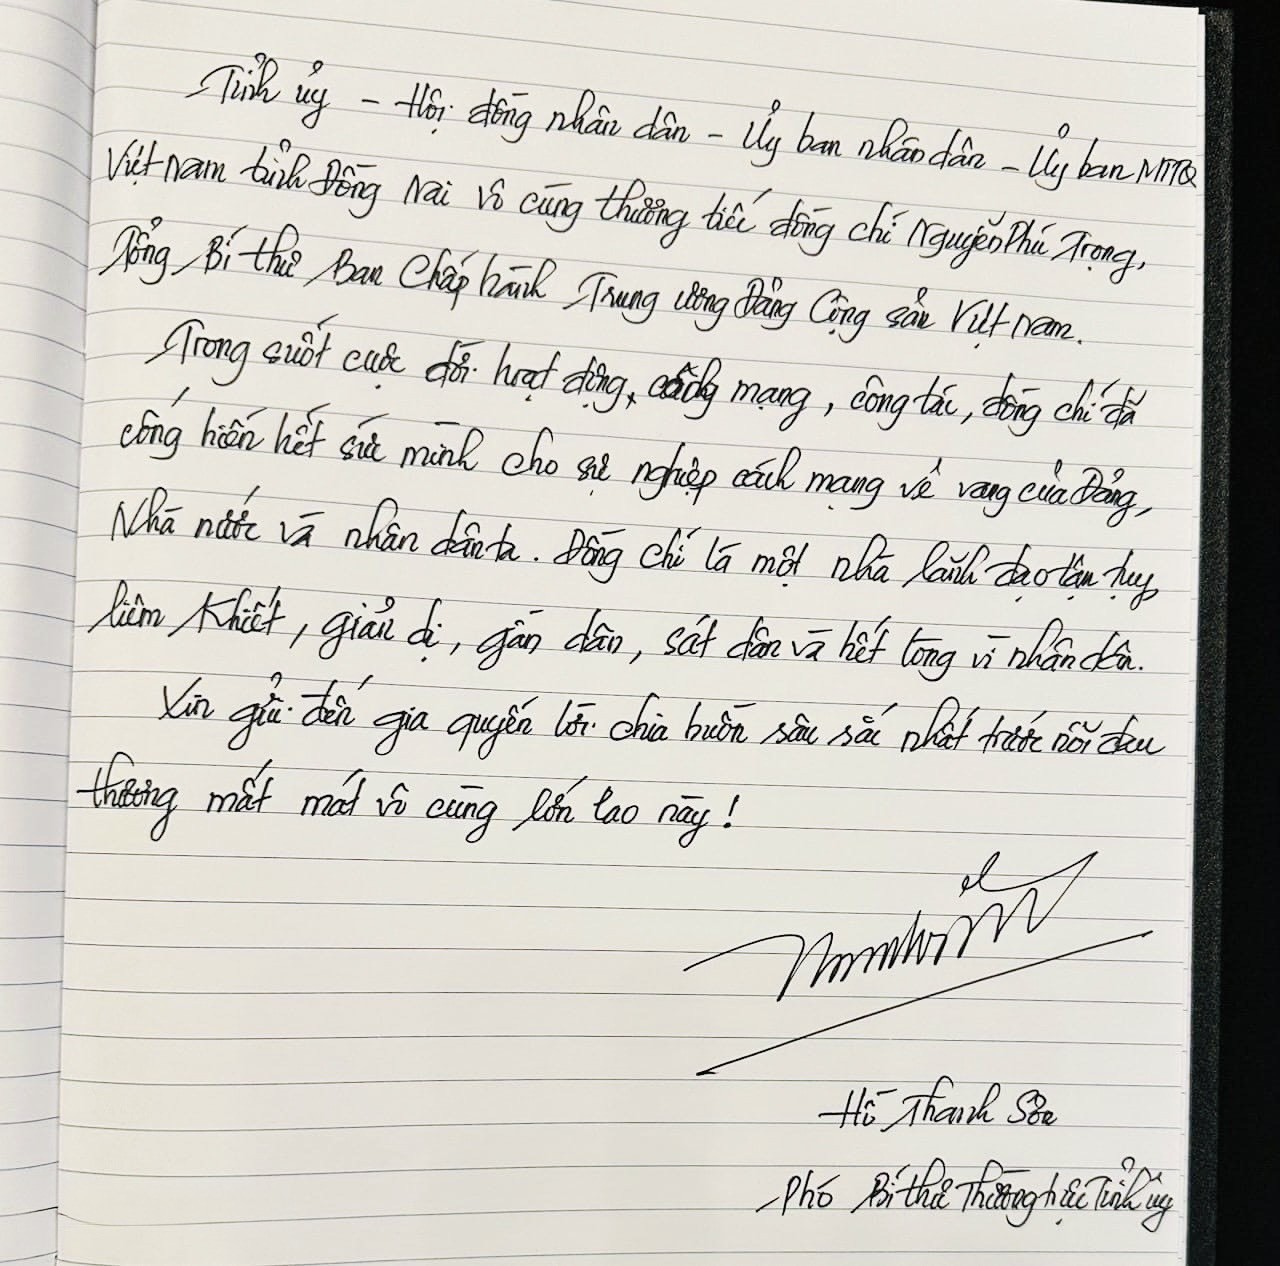 Tỉnh ủy - Hội đồng nhân dân - Ủy ban nhân dân - Ủy ban MTTQ
Việt Nam tỉnh Đồng Nai vô cùng thương tiếc đồng chí Nguyễn Phú Trọng,
Tổng Bí thư Ban Chấp hành Trung ương Đảng Cộng sản Việt Nam.
Trong suốt cuộc đời hoạt động, cách mạng, công tác, đồng chí đã
cống hiến hết sức mình cho sự nghiệp cách mạng vẻ vang của Đảng,
Nhà nước và nhân dân ta. Đồng chí là một nhà lãnh đạo tận tụy,
liêm khiết, giản dị, gần dân, sát dân và hết lòng vì nhân dân.
Xin gửi đến gia quyến lời chia buồn sâu sắc nhất trước nỗi đau
thương mất mát vô cùng lớn lao này!
Hồ Thanh Sơn
Phó Bí thư Thường trực Tỉnh ủy